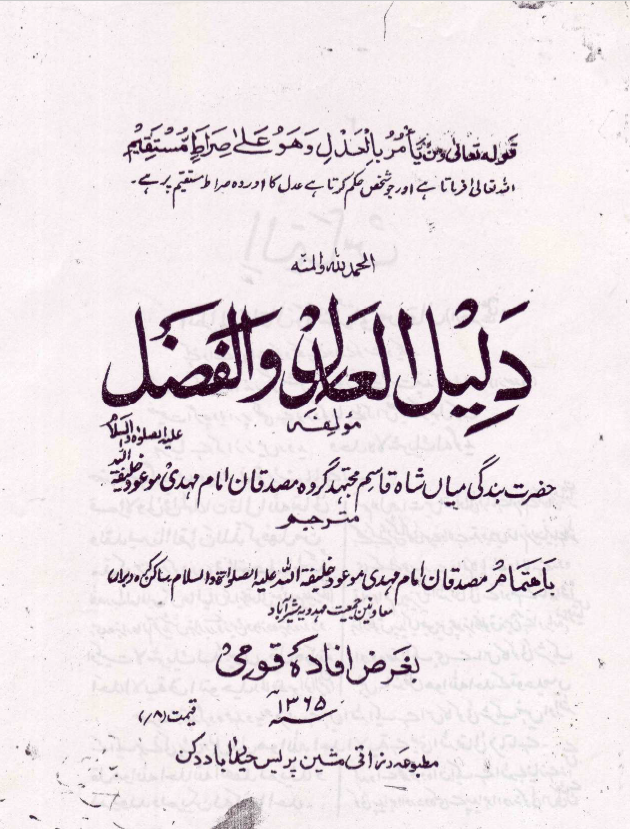 قوله تعالى ومن يأمر بالعدل وهو على صراط مستقيم
اللہ تعالیٰ فرماتا ہے اور جو شخص حکم کرتا ہے عدل کا اور وہ صراط مستقیم پر ہے۔
الحمد للہ والمنہ
دَلِيْلُ العَدلِ وَالفَضل
مؤلفہ
حضرت بندگی میاں شاہ قاسم مجتہد گروہ مصدقان امام مہدی موعود خلیفۃ اللہ علیہ الصلوٰۃ والسلام
مترجم
باهتمام مصدقان امام مہدی موعود خلیفۃ اللہ علیہ الصلوٰۃ والسلام ساکن
جمعیت مہدویہ مشیرآباد
بغرض افادۂ قومی
سنہ ۱۳۶۵ھ
قیمت (۸/)
مطبوعہ مشین پریس حیدرآباد دکن